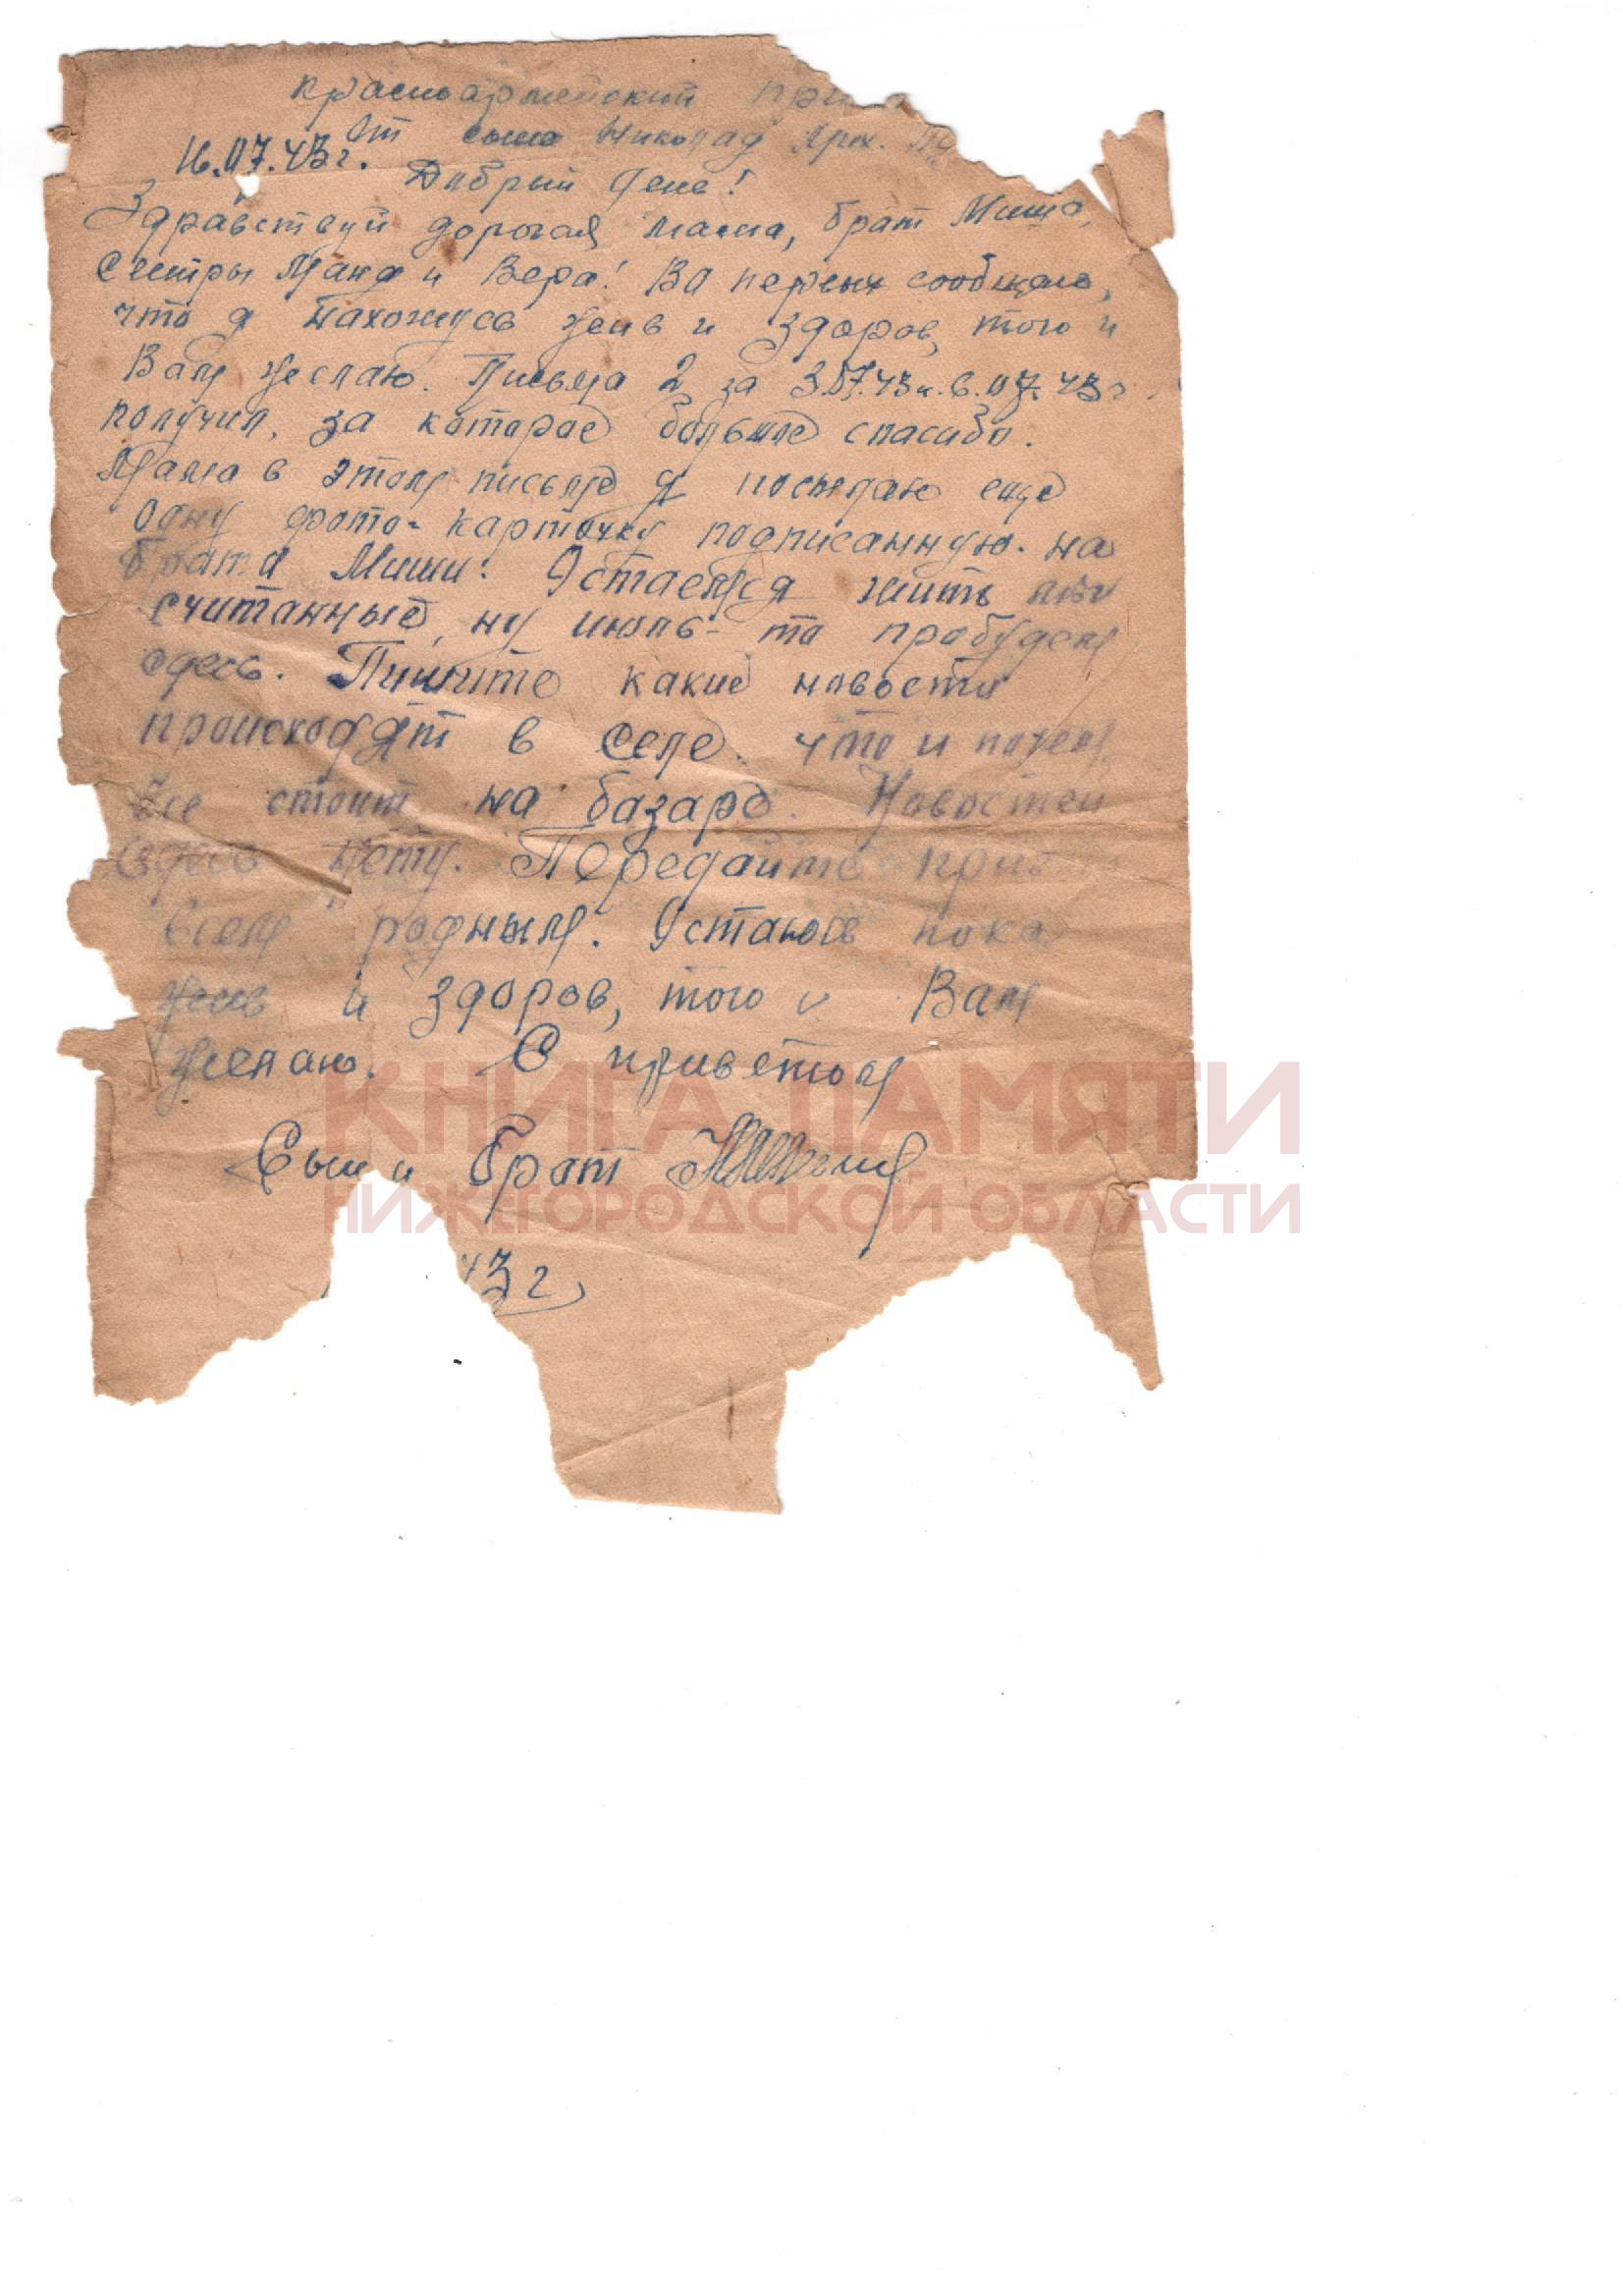 Красноармейский при
От сына Николая Арх. По
16.07.43г.
Добрый день!
Здравствуй дорогая мама, брат Миша,
Сестры Маня и Вера! Во первых сообщаю,
что я нахожусь жив и здоров, того и
Вам желаю. Письма 2 за 3.07.43 и 6.07.43г.
получил, за которое большое спасибо.
Мама в этом письме я посылаю еще
одну фото-карточку подписанную на
брата Миши. Остаемся жить
считанные, ну июль-то пробудем
здесь. Пишите какие новости
происходят в селе. что и почем
все стоит на базаре. Новостей
здесь нету. Передайте приве
всем родным. Остаюсь пока
жив и здоров, того и Вам
желаю. С приветом
Сын и брат
43 г.
КНИГА ПАМЯТИ
НИЖЕГОРОДСКОЙ ОБЛАСТИ